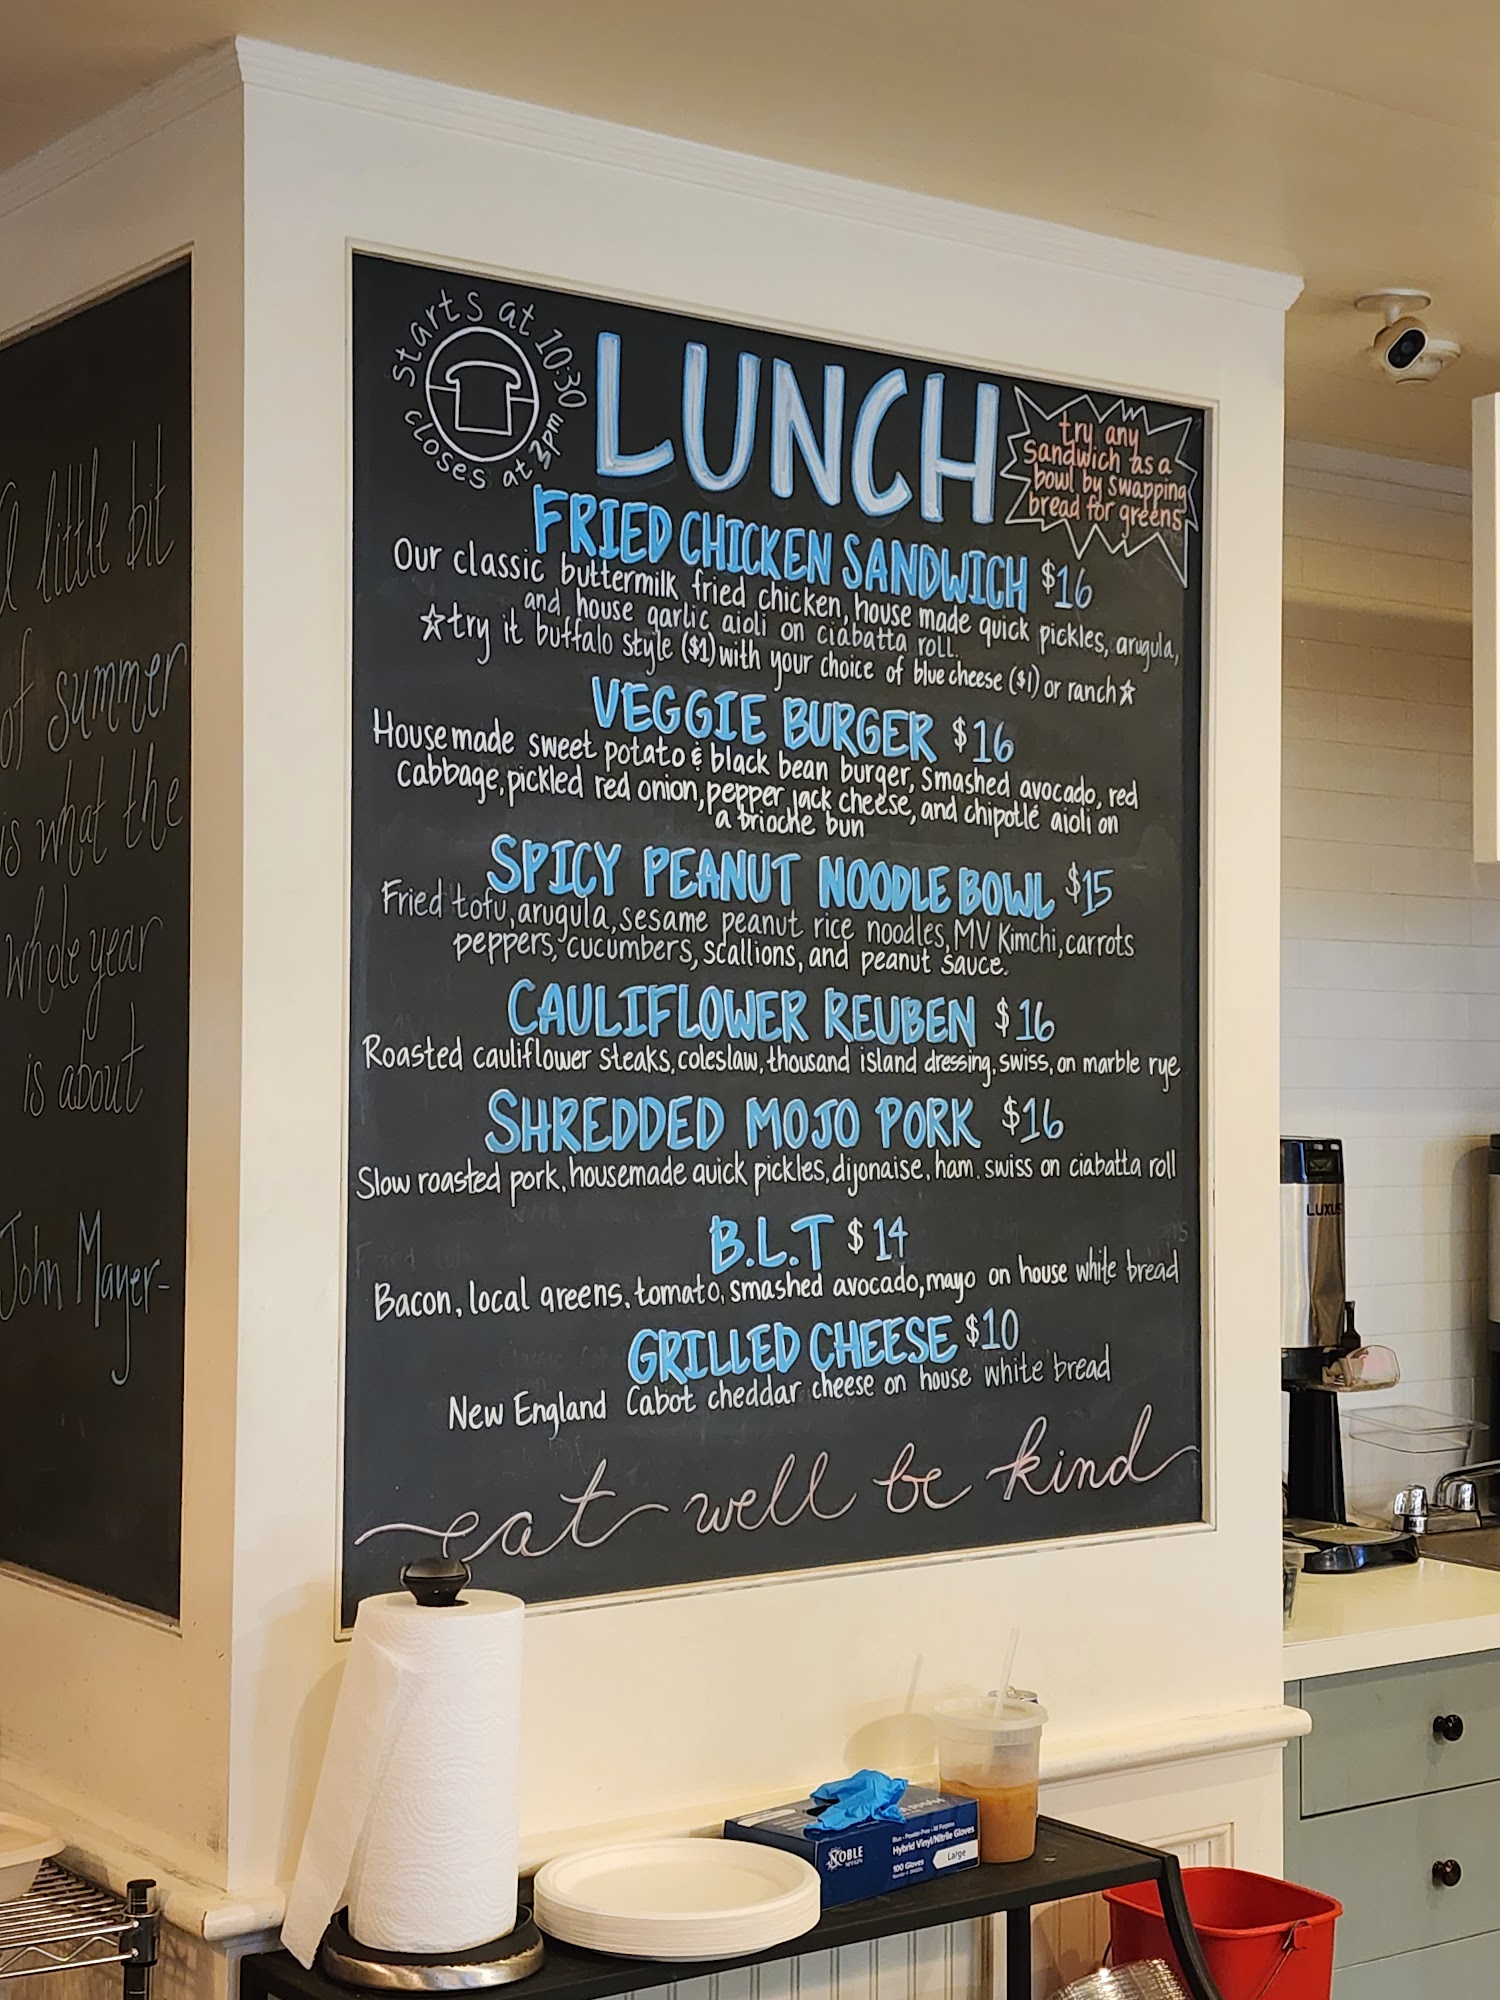 A little bit
of summer
is what the
whole year
is about
John Mayer-
starts at 10:30
closes at 3pm
LUNCH
try any
sandwich as a
bowl by swapping
bread for greens
FRIED CHICKEN SANDWICH $16
Our classic buttermilk fried chicken, house made quick pickles, arugula,
and house garlic aioli on ciabatta roll.
☆try it buffalo style ($1) with your choice of blue cheese ($1) or ranch☆
VEGGIE BURGER $16
House made sweet potato & black bean burger, smashed avocado, red
cabbage, pickled red onion, pepper jack cheese, and chipotlé aioli on
a brioche bun
SPICY PEANUT NOODLE BOWL $15
Fried tofu, arugula, sesame peanut rice noodles, MV Kimchi, carrots
peppers, cucumbers, scallions, and peanut sauce.
CAULIFLOWER REUBEN $16
Roasted cauliflower steaks, coleslaw, thousand island dressing, swiss, on marble rye
SHREDDED MOJO PORK $16
Slow roasted pork, housemade quick pickles, dijonaise, ham. swiss on ciabatta roll
B.L.T $14
Bacon, local greens, tomato, smashed avocado, mayo on house white bread
GRILLED CHEESE $10
New England Cabot cheddar cheese on house white bread
eat well be kind
LUXUS
NOBLE
Blue - Powder-Free - All Purpose
Hybrid Vinyl/Nitrile Gloves
100 Gloves
Large